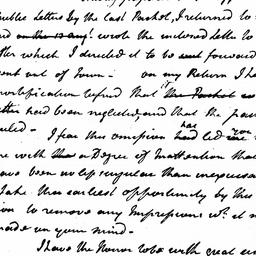 Publick Letters by the last Packet, I returned to
and on the 13 Augt. wrote the inclosed letter to
after which I directed it to be sent forward
went out of Town - on my Return I ha
mortification to find that the Packet
letter had been neglected, and that the pac
sailed - I fear this omission has led you
me with a Degree of Inattention that
have been no less singular than inexcusa
Take the earliest opportunity by this
to remove any Impressions wh. it m
made on your mind -
I have the Honor to be with great es